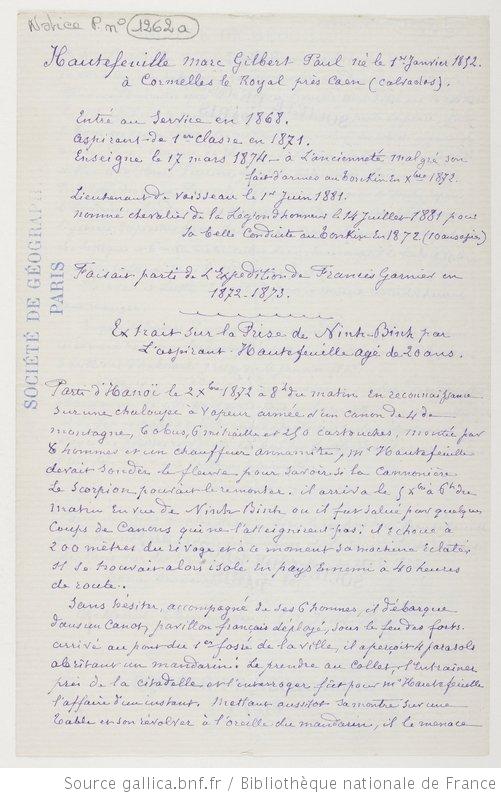 Notice P. n° 1262a
Hautefeuille Marc Gilbert Paul né le 1er Janvier 1852
à Cormelles le Royal près Caen (Calvados).
Entré au Service en 1868.
Aspirant de 1ère Classe en 1871.
Enseigne le 17 mars 1874 - à l'ancienneté malgré son
fait d'armes au Tonkin en Xbre 1872.
Lieutenant de Vaisseau le 1er Juin 1881.
nommé chevalier de la Légion d'honneur le 14 Juillet 1881 pour
sa belle Conduite au Tonkin en 1872. (10 ans après)
Faisait parti de l'Expédition de Francis Garnier en
1872-1873.
Extrait sur la Prise de Ninh-Binh par
l'aspirant Hautefeuille agé de 20 ans.
Parti d'Hanoï le 2 Xbre 1872 à 8h du matin en reconnaissance
sur une chaloupe à vapeur armée d'un canon de 4 de
montagne, 6 obus, 6 mitraille et 250 cartouches, montée par
8 hommes et un chauffeur annamite, Mr Hautefeuille
devait sonder le fleuve pour savoir si la Cannonière
le Scorpion pouvait le remonter. il arriva le 5 Xbre à 6h du
matin en vue de Ninh Binh où il fut salué par quelques
Coups de Canons qui ne l'atteignirent pas; il échoue à
200 mètres du rivage et à ce moment sa machine éclate,
il se trouvait alors isolé en pays Ennemi à 40 heures
de route.
Sans hésiter, accompagné de ses 6 hommes, il débarque
dans un Canot, pavillon français déployé, sous le feu des forts.
arrivé au pont du 1er fossé de la ville, il aperçoit 4 parasols
abritant un mandarin: Le prendre au Collet, l'entrainer
près de la citadelle et l'interroger fût pour Mr Hautefeuille
l'affaire d'un instant. Mettant aussitôt sa montre sur une
table et son révolver à l'oreille du mandarin, il le menace
SOCIÉTÉ DE GÉOGRAPHIE
PARIS
Source gallica.bnf.fr / Bibliothèque nationale de France